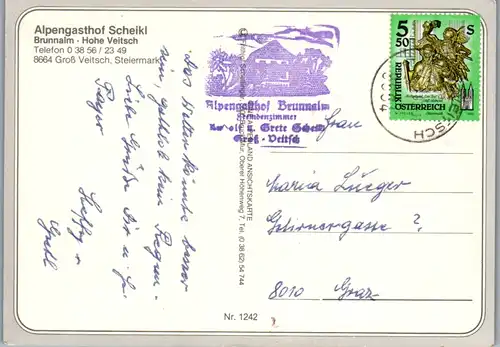 Alpengasthof Scheikl
Brunnalm · Hohe Veitsch
Telefon 0 38 56 / 23 49
8664 Groß Veitsch, Steiermark
Das Wetter könnte besser
sein, gottlob kein Regen.
Liebe Grüße Dir u.
Grete
Alpengasthof Brunnalm
Fremdenzimmer
Rudolf u. Grete Scheikl
Groß-Veitsch
ANSICHTSKARTE
Oberer Höhenweg 7, Tel. (0 38 62) 54 744
Nr. 1242
5 50 S
REPUBLIK
ÖSTERREICH
VEITSCH
Frau
Maria Lueger
?
8010 Graz